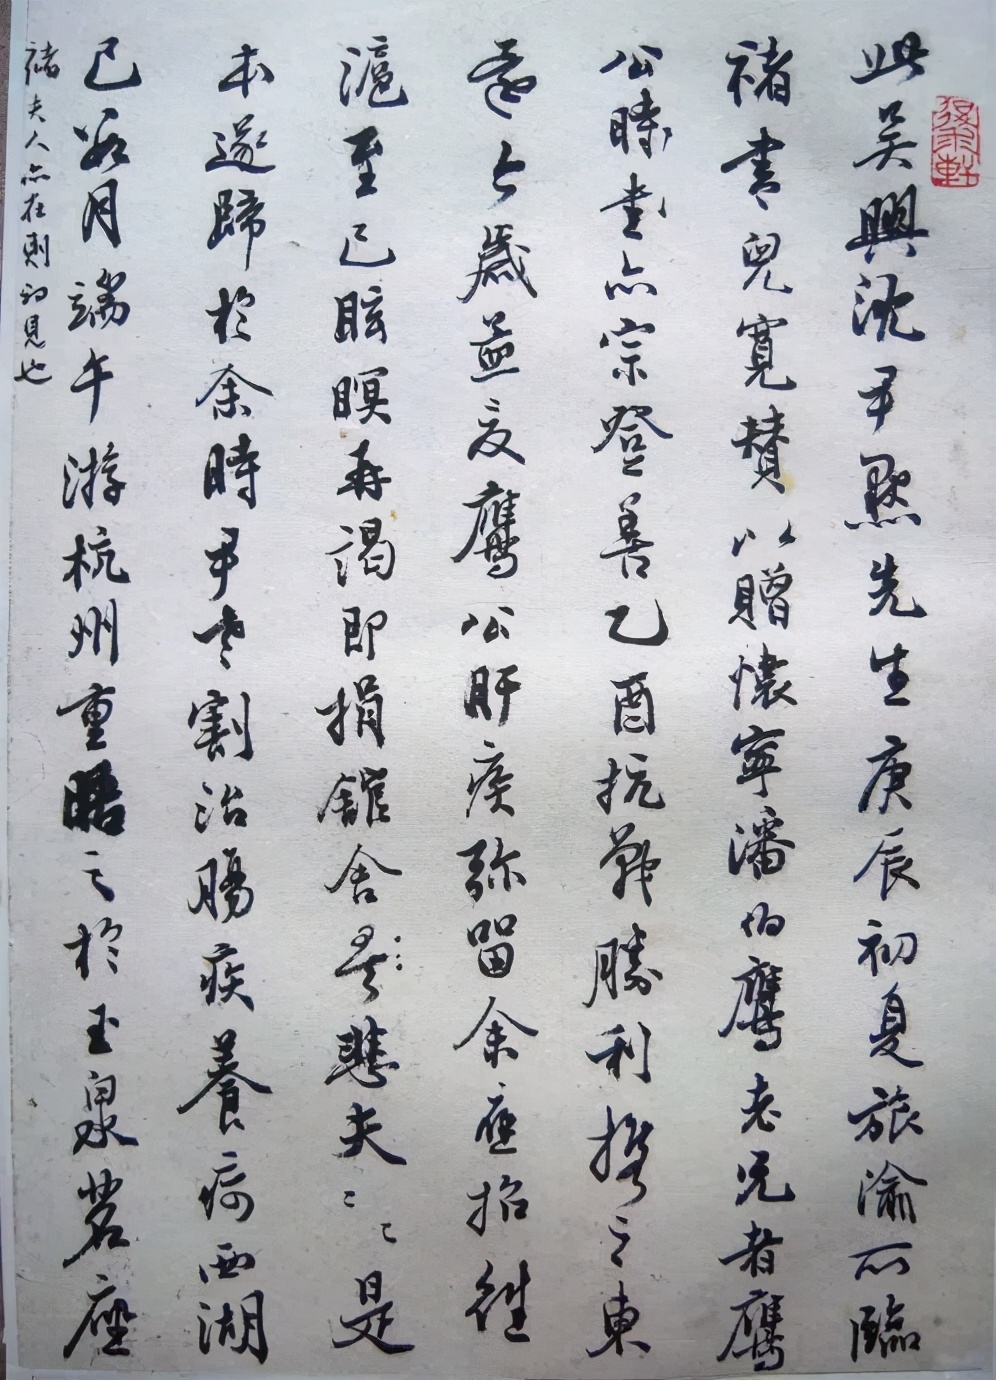 此吴興沈尹默先生庚辰初夏旅渝所臨
褚書兒寬贊以贈懷寧潘伯鷹老兄者鷹
公時書亦宗登善乙酉抗戰勝利携之東
歲益友鷹公肝疾弥留余應招往
滬至已眩瞑再渴即捐舘舍悲夫悲夫是
本遂歸於余時尹老割治腸疾養疴西湖
已 月端午游杭州重晤之於玉泉茗座
褚夫人亦在則初見也